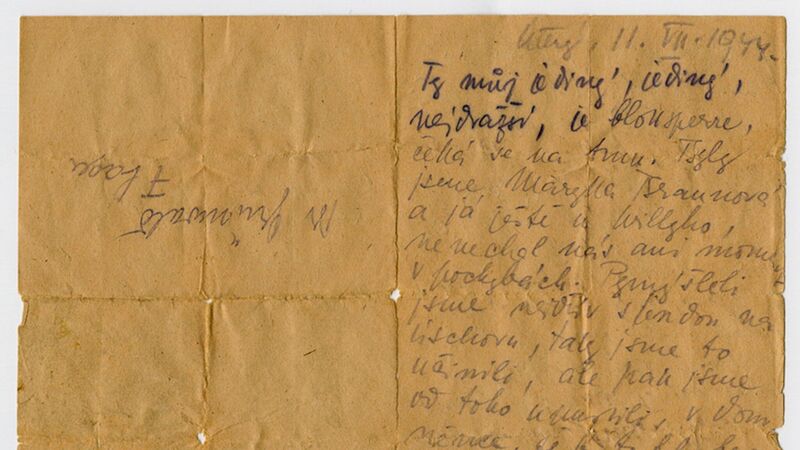 Úterý, 11. VII. 1944.
Ty můj jediný, jediný,
nejdražší, je bloksperre,
čeká se na tmu. Byly
jsme, Maryka Braunová
a já ještě u Willyho,
nenechal nás ani moment
v pochybách. Pomýšleli
jsme nejdřív
tak jsme to
učinili, ale pak jsme
od toho upustili, v dom-
něnce,